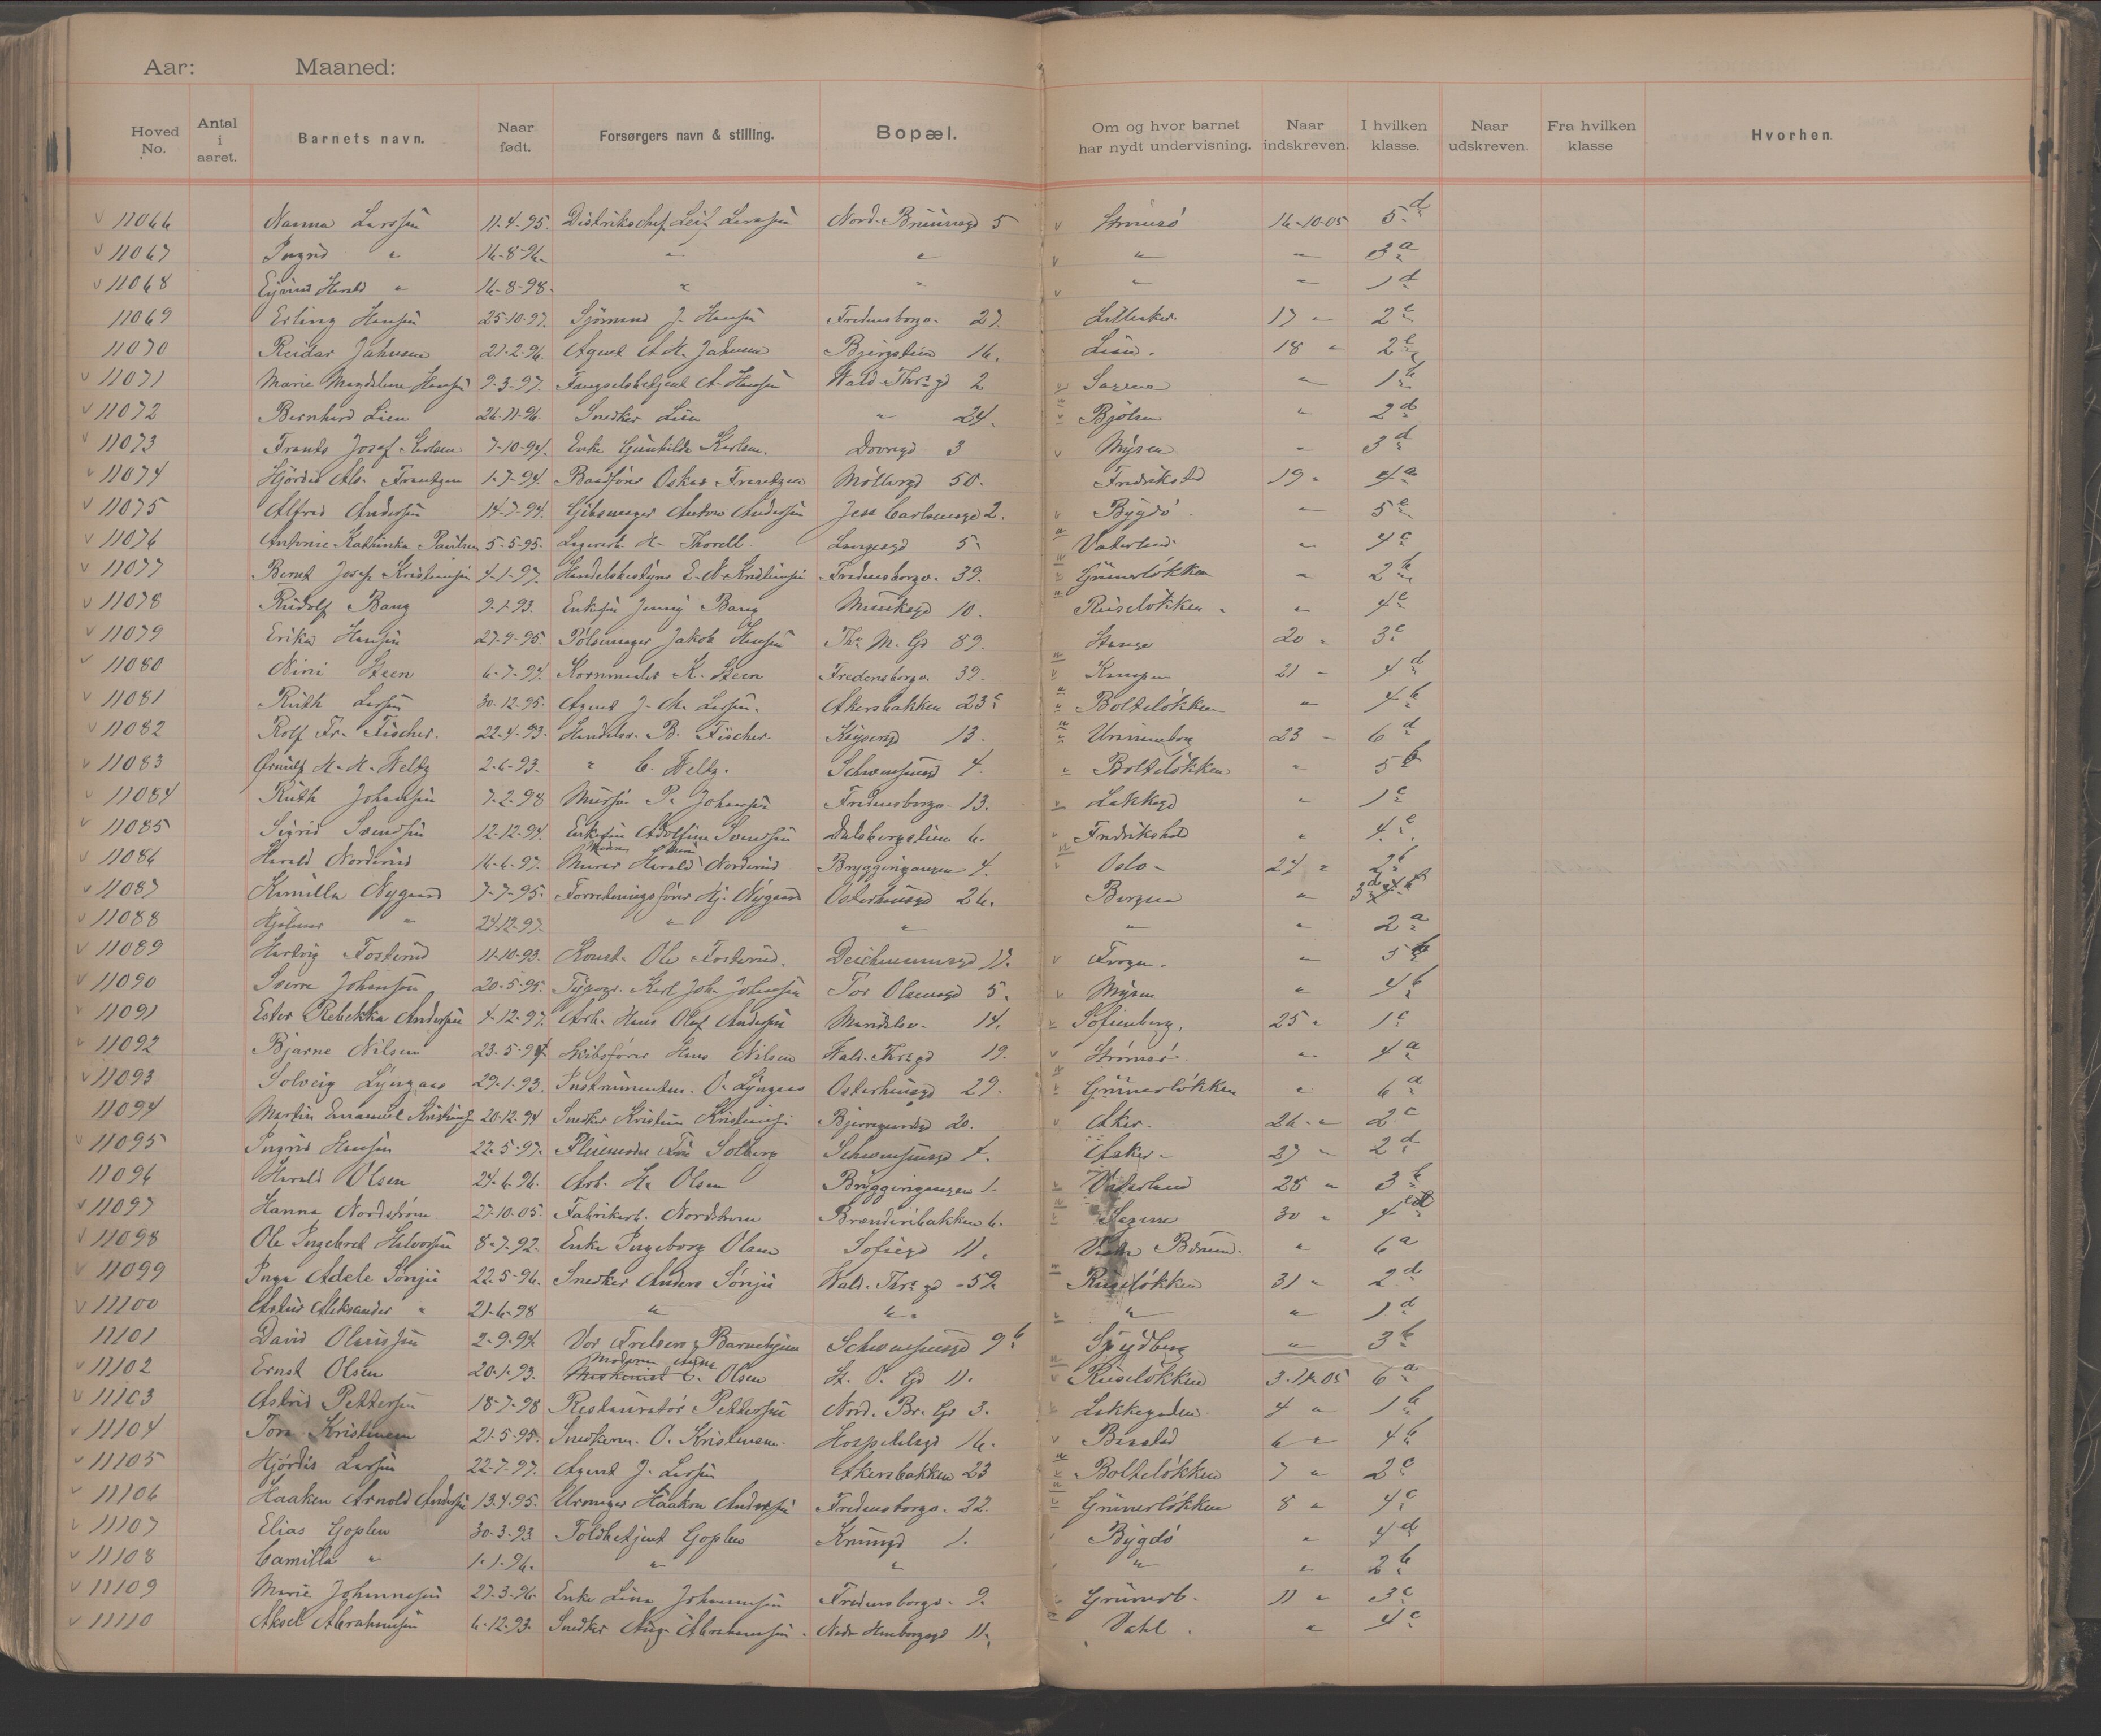 Aar: Maaned:
Hoved No. Antal i aaret. Barnets navn. Naar født. Forsørgers navn & stilling. Bopæl. Om og hvor barnet har nydt undervisning. Naar indskreven. I hvilken klasse. Naar udskreven. Fra hvilken klasse Hvorhen.
v 11066 Nanna Larssen 11-4-95. Distriktschef Leif Larssen Nord. Bruunsgd 5 v Strømsø 16-10-05 5d
v 11067 Ingrid " 16-8-96. " " v " " 3a
v 11068 Eyvind Harald " 16-8-98. " " v " " 1d
11069 Erling Hansen 25-10-97. Sjømand J. Hansen Fredensborgv. 27. Lilleaker 17 " 2c
11070 Reidar Jahnsen 21-2-96. Agent A. M. Jahnsen Bjergstien 16. Lien. 18 " 2c
v 11071 Marie Magdalene Hansen 9-3-97. Fængselsbetjent A. Hansen Wald. Thrs gd 2 v Sagene " 1b
v 11072 Bernhard Lien 26-11-96. Snedker Lien " 24. v Bjølsen " 2d
v 11073 Frants Josef Karlsen 7-10-94. Enke Gunhilde Karlsen. Dovregd 3 v Mysen " 3d
v 11074 Hjørdis Als. Frantzen 1-7-94. Baadfører Oskar Frantzen Møllergd 50. Fredrikstad 19 " 4a
v 11075 Alfred Andersen 14-7-94. Gibsmager Anton Andersen Jess Carlsensgd 2. v Bygdø. " 5c
v 11076 Antonie Kathinka Paulsen 5-5-95. Lagerarb. H. Thorell Langesgd 5 Vaterland " 4c
v 11077 Bernt Josef Kristiansen 4-1-97. Handelsbestyrer E. N. Kristiansen Fredensborgv. 39. Grünerløkken " 2b
v 11078 Rudolf Bang 9-1-93. Enkefru Jenny Bang Munkegd 10. Ruseløkken " 4c
v 11079 Erika Hansen 27-9-95. Pølsemager Jakob Hansen Ths M. Gd 89. Stange 20 " 3c
v 11080 Nini Steen 6-7-94. Kornmaaler K. Steen Fredensborgv. 39. v Kampen 21 " 4d
v 11081 Ruth Larsen 30-12-95. Agent J. M. Larsen. Akersbakken 23c Bolteløkken " 4b
v 11082 Rolf Fr. Fischer. 22-4-93. Handelsr. B. Fischer. Keysersgd 13. Uranienborg 23 " 6d
v 11083 Ørnulf H. H. Weltz 2-6-93. " C. Weltz. Schwensensgd 4. Bolteløkken " 5b
v 11084 Ruth Johansen 7-2-98 Mursv. P. Johansen Fredensborgv. 13. Lakkegd " 1c
v 11085 Sigrid Svendsen 12-12-94. Enkefru Adolfine Svendsen Dalsbergstien 6. v Fredrikshald " 4c
v 11086 Harald Norderud 16-6-97. Murer Harald Norderud Bryggerigangen 4. v Oslo 24 "
v 11087 Kamilla Nygaard 7-7-95. Forretningsfører Hj. Nygaard Osterhausgd 26. Bergen "
v 11088 Hjalmar " 24-12-97. " " " " 2a
v 11089 Hartvig Fosterud 11-10-93. Konst. Ole Fosterud. Deichmannsgd 17. v Frogn. " 5b
v 11090 Sverre Johansen 20-5-95. Typogr. Karl Joh. Johansen Tor Olsensgd 5. v Mysen " 4b
v 11091 Ester Rebekka Andersen 4-12-97. Arb. Hans Olaf Andersen Maridalsv. 14. v Sofienberg. 25 " 1c
v 11092 Bjarne Nilsen 23-5-94. Skibsfører Hans Nilsen Wald. Thrs gd 19. v Strømsø. " 4a
v 11093 Solveig Lyngaas 29-1-93. Instrumentm. O. Lyngaas Osterhausgd 29. Grünerløkken " 6d
11094 Martin Emanuel Kristians. 20-12-94 Snedker Kristian Kristians. Bjerregaardsgd 20. v Aker. 26 " 2c
v 11095 Ingrid Hansen 22-5-97. Pleiemoder Fru Solberg Schwensensgd 4. Asker. 27 " 2d
11096 Harald Olsen 24-6-96. Arb. H. Olsen Bryggerigangen 1. Vaterland 28 " 3b
v 11097 Hanna Nordstrøm 27-10-05. Fabrikarb. Nordstrøm Brænderibakken 6. Sagene 30 "
v 11098 Ole Ingebret Halvorsen 8-7-92. Enke Ingeborg Olsen Sofiegd 11. Vestre Bærum. " 6a
v 11099 Inga Adele Sønju 22-5-96. Snedker Anders Sønju Wald. Thrs gd 59 Ruseløkken 31 " 2d
v 11100 Artur Aleksander " 21-6-98 " " " " 1d
11101 David Olaussen 2-9-94 Vor Frelsers Barnehjem Schwensensgd 9b Spydberg " 3b
v 11102 Ernst Olsen 20-1-93. Maskinist C. Olsen St. O. Gd 11. Ruseløkken 3-11-05 6a
v 11103 Astrid Pettersen 18-7-98 Restauratør Pettersen Nord. Br. Gd 3. Lakkegaden 4 " 1b
v 11104 Tora Kristensen 21-5-95. Snedkerm. O. Kristensen. Hospitalsgd 16. v 6 " 4b
v 11105 Hjørdis Larsen 22-7-97. Agent J. Larsen Akersbakken 23 Bolteløkken 7 " 2c
v 11106 Haakon Arnold Andersen 13-4-95. Urmager Haakon Andersen Fredensborgv. 22. Grünerløkken 8 " 4c
v 11107 Elias Goplen 30-3-93 Toldbetjent Goplen Krumgd 1. Bygdø " 4d
v 11108 Camilla " 1-1-96. " " " " 2b
v 11109 Marie Johannesen 27-3-96 Enke Lina Johannesen Fredensborgv. 9. Grünerl. 11 " 3c
v 11110 Aksel Abrahamsen 6-12-93. Snedker Aug. Abrahamsen. 11. Vahl. " 4c